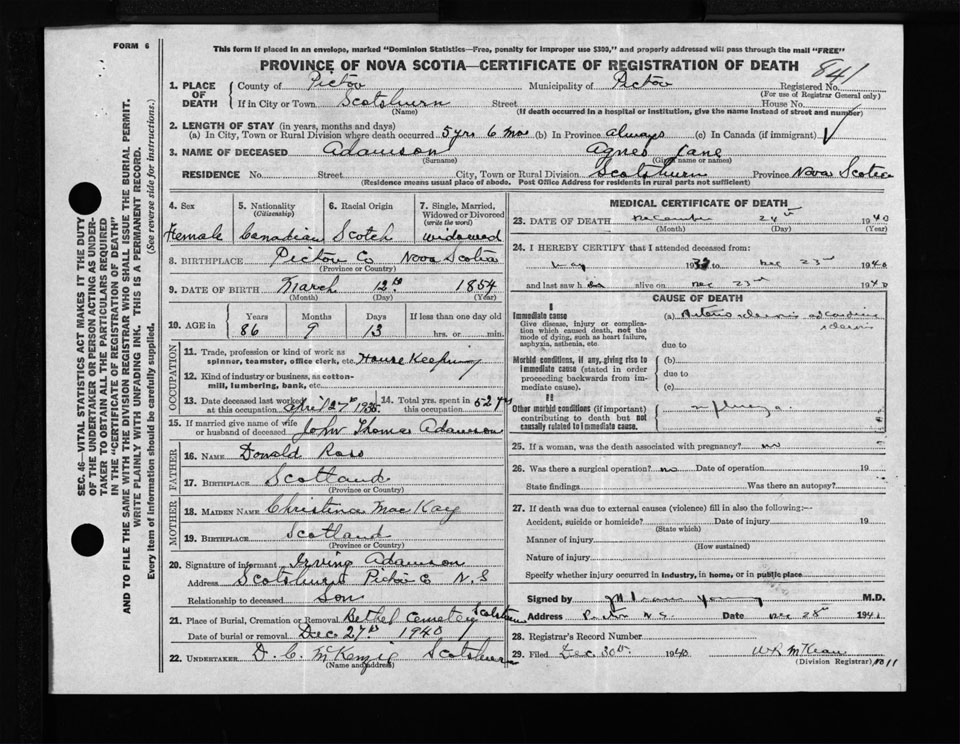 FORM 6
This form if placed in an envelope, marked "Dominion Statistics—Free, penalty for improper use $300," and properly addressed will pass through the mail "FREE"
PROVINCE OF NOVA SCOTIA—CERTIFICATE OF REGISTRATION OF DEATH
841
1. PLACE OF DEATH
County of Pictou Municipality of Pictou Registered No.
(For use of Registrar General only)
If in City or Town Scotsburn Street House No.
(Name) (If death occurred in a hospital or institution, give the name instead of street and number)
2. LENGTH OF STAY (in years, months and days)
(a) In City, Town or Rural Division where death occurred 5 yrs 6 mos (b) In Province always (c) In Canada (if immigrant)
3. NAME OF DECEASED Adamson Agnes Jane
(Surname) (Given name or names)
RESIDENCE No. Street City, Town or Rural Division Scotsburn Province Nova Scotia
(Residence means usual place of abode. Post Office Address for residents in rural parts not sufficient)
4. Sex
Female
5. Nationality (Citizenship)
Canadian
6. Racial Origin
Scotch
7. Single, Married, Widowed or Divorced (write the word)
widowed
8. BIRTHPLACE Pictou Co Nova Scotia
(Province or Country)
9. DATE OF BIRTH March 12th 1854
(Month) (Day) (Year)
10. AGE in Years Months Days If less than one day old
86 9 13 hrs. or min.
OCCUPATION
11. Trade, profession or kind of work as spinner, teamster, office clerk, etc. House Keeping
12. Kind of industry or business, as cotton-mill, lumbering, bank, etc.
13. Date deceased last worked at this occupation April 27th 1935
14. Total yrs. spent in this occupation 52 yrs
15. If married give name of wife or husband of deceased John Thomas Adamson
FATHER
16. NAME Donald Ross
17. BIRTHPLACE Scotland
(Province or Country)
MOTHER
18. MAIDEN NAME Christina MacKay
19. BIRTHPLACE Scotland
(Province or Country)
20. Signature of informant Irving Adamson
Address Scotsburn Pictou Co N.S
Relationship to deceased Son
21. Place of Burial, Cremation or Removal Bethel Cemetery Scotsburn
Date of burial or removal Dec 27th 1940
22. UNDERTAKER D. C. McKenzie Scotsburn
(Name and address)
MEDICAL CERTIFICATE OF DEATH
23. DATE OF DEATH December 24th 1940
(Month) (Day) (Year)
24. I HEREBY CERTIFY that I attended deceased from:
May 19 to Dec 23rd 1940
and last saw h alive on Dec 23rd 1940
CAUSE OF DEATH
I
Immediate cause
Give disease, injury or complication which caused death, not the mode of dying, such as heart failure, asphyxia, asthenia, etc.
(a) Arterio sclerosis
due to
Morbid conditions, if any, giving rise to immediate cause (stated in order proceeding backwards from immediate cause).
(b)
due to
(c)
II
Other morbid conditions (if important) contributing to death but not causally related to immediate cause.
Influenza
25. If a woman, was the death associated with pregnancy? no
26. Was there a surgical operation? no Date of operation 19
State findings Was there an autopsy?
27. If death was due to external causes (violence) fill in also the following:—
Accident, suicide or homicide? Date of injury 19
(State which)
Manner of injury
(How sustained)
Nature of injury
Specify whether injury occurred in industry, in home, or in public place
Signed by Young M.D.
Address Pictou N.S. Date Dec 28th 194
28. Registrar's Record Number
29. Filed Dec. 30th 1940 McKean
(Division Registrar)
SEC. 46—VITAL STATISTICS ACT MAKES IT THE DUTY
OF THE UNDERTAKER OR PERSON ACTING AS UNDER-
TAKER TO OBTAIN ALL THE PARTICULARS REQUIRED
IN THE "CERTIFICATE OF REGISTRATION OF DEATH"
AND TO FILE THE SAME WITH THE DIVISION REGISTRAR WHO SHALL ISSUE THE BURIAL PERMIT.
WRITE PLAINLY WITH UNFADING INK. THIS IS A PERMANENT RECORD.
Every item of information should be carefully supplied. (See reverse side for instructions.)